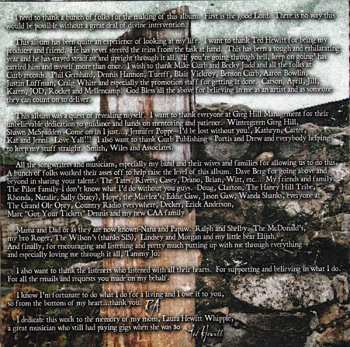 I need to thank a bunch of folks for the making of this album. First is the good Lord. There is no way this
would be possible without a great deal of divine intervention.
This album has been quite an experience of looking at my life. I want to thank Ted Hewitt for being my
producer and friend,
he has never steered the reins from the task at hand. This has been a tough and exhilarating
year and he has stayed
straight through it all. If you're going through hell, keep on going" has
carried him and myself more than once.
I wish to thank Mike Curb and Becky Judd and all the folks at
Curb records. Phil Gernhard,
Dennis Hannon, Benson Curb, Aaron Bowlin,
Justin
Craig White and especially the promotion staff for getting it done. Carson,
Karen, JOD, Rocket and Mellencamp. God Bless all the above for believing in me as an artist and as someone
they can count on to deliver.
This album was a quest of revealing myself. I want to thank everyone at Greg Hill Management for their
unbelievable dedication and hands on mentoring and patience. Wintergreen Greg Hill,
Shawn McSpadden "Come on in Host, Jennifer Poppe "I'd be lost without you", Kathryn, Carter,
Kat and Jenni "Love Yall!" I also want to thank Curb Publishing - Portis and Drew and everybody helping
to keep my stuff straight - Smithy, Wiles and Associates
All the songwriters and musicians, especially my band and their wives and families for allowing us to do this
A bunch of folks worked their asses off to help raise the level of this album. Dave Berg for going above and
beyond in sharing your talent. The Tates, Rivers, Casey, Deano, Brian, Witt, etc... My friends and family
The Pilot Family - I don't know what I'd do without you guys. Doug, Clarton, The Haney Hill Tribe,
Rhonda, Natalie, Sally (Stacy), Hope, the Maciez's, Eddie Gaw, Jason Gaw, Wanda Shanks, Everyone at
The Grand Ole Opry, Country Radio everywhere, Decker, Erick Anderson,
Marc "Got Your Tickets" Dennis and my new CAA family
Mama and Dad or as they are now known - Nana and Papaw. Ralph and Shelby - The McDonald's,
my bro Roger, The Wilson's (thanks SIS), Lindsey and Morgan and my little bear Elijah.
And finally, for encouraging and listening and pretty much putting up with me through everything
and especially loving me through it all, Tammy Jo.
I also want to thank the listeners who listened with all their hearts. For supporting and believing in what I do.
For all the emails and requests you made on my behalf
I know I'm fortunate to do what I do for a living and I owe it to you,
so from the bottom of my heart...thank you
I dedicate this work to the memory of my mom, Laura Hewitt Whipple,
a great musician who still had paying gigs when she was 80 Ted Hewitt